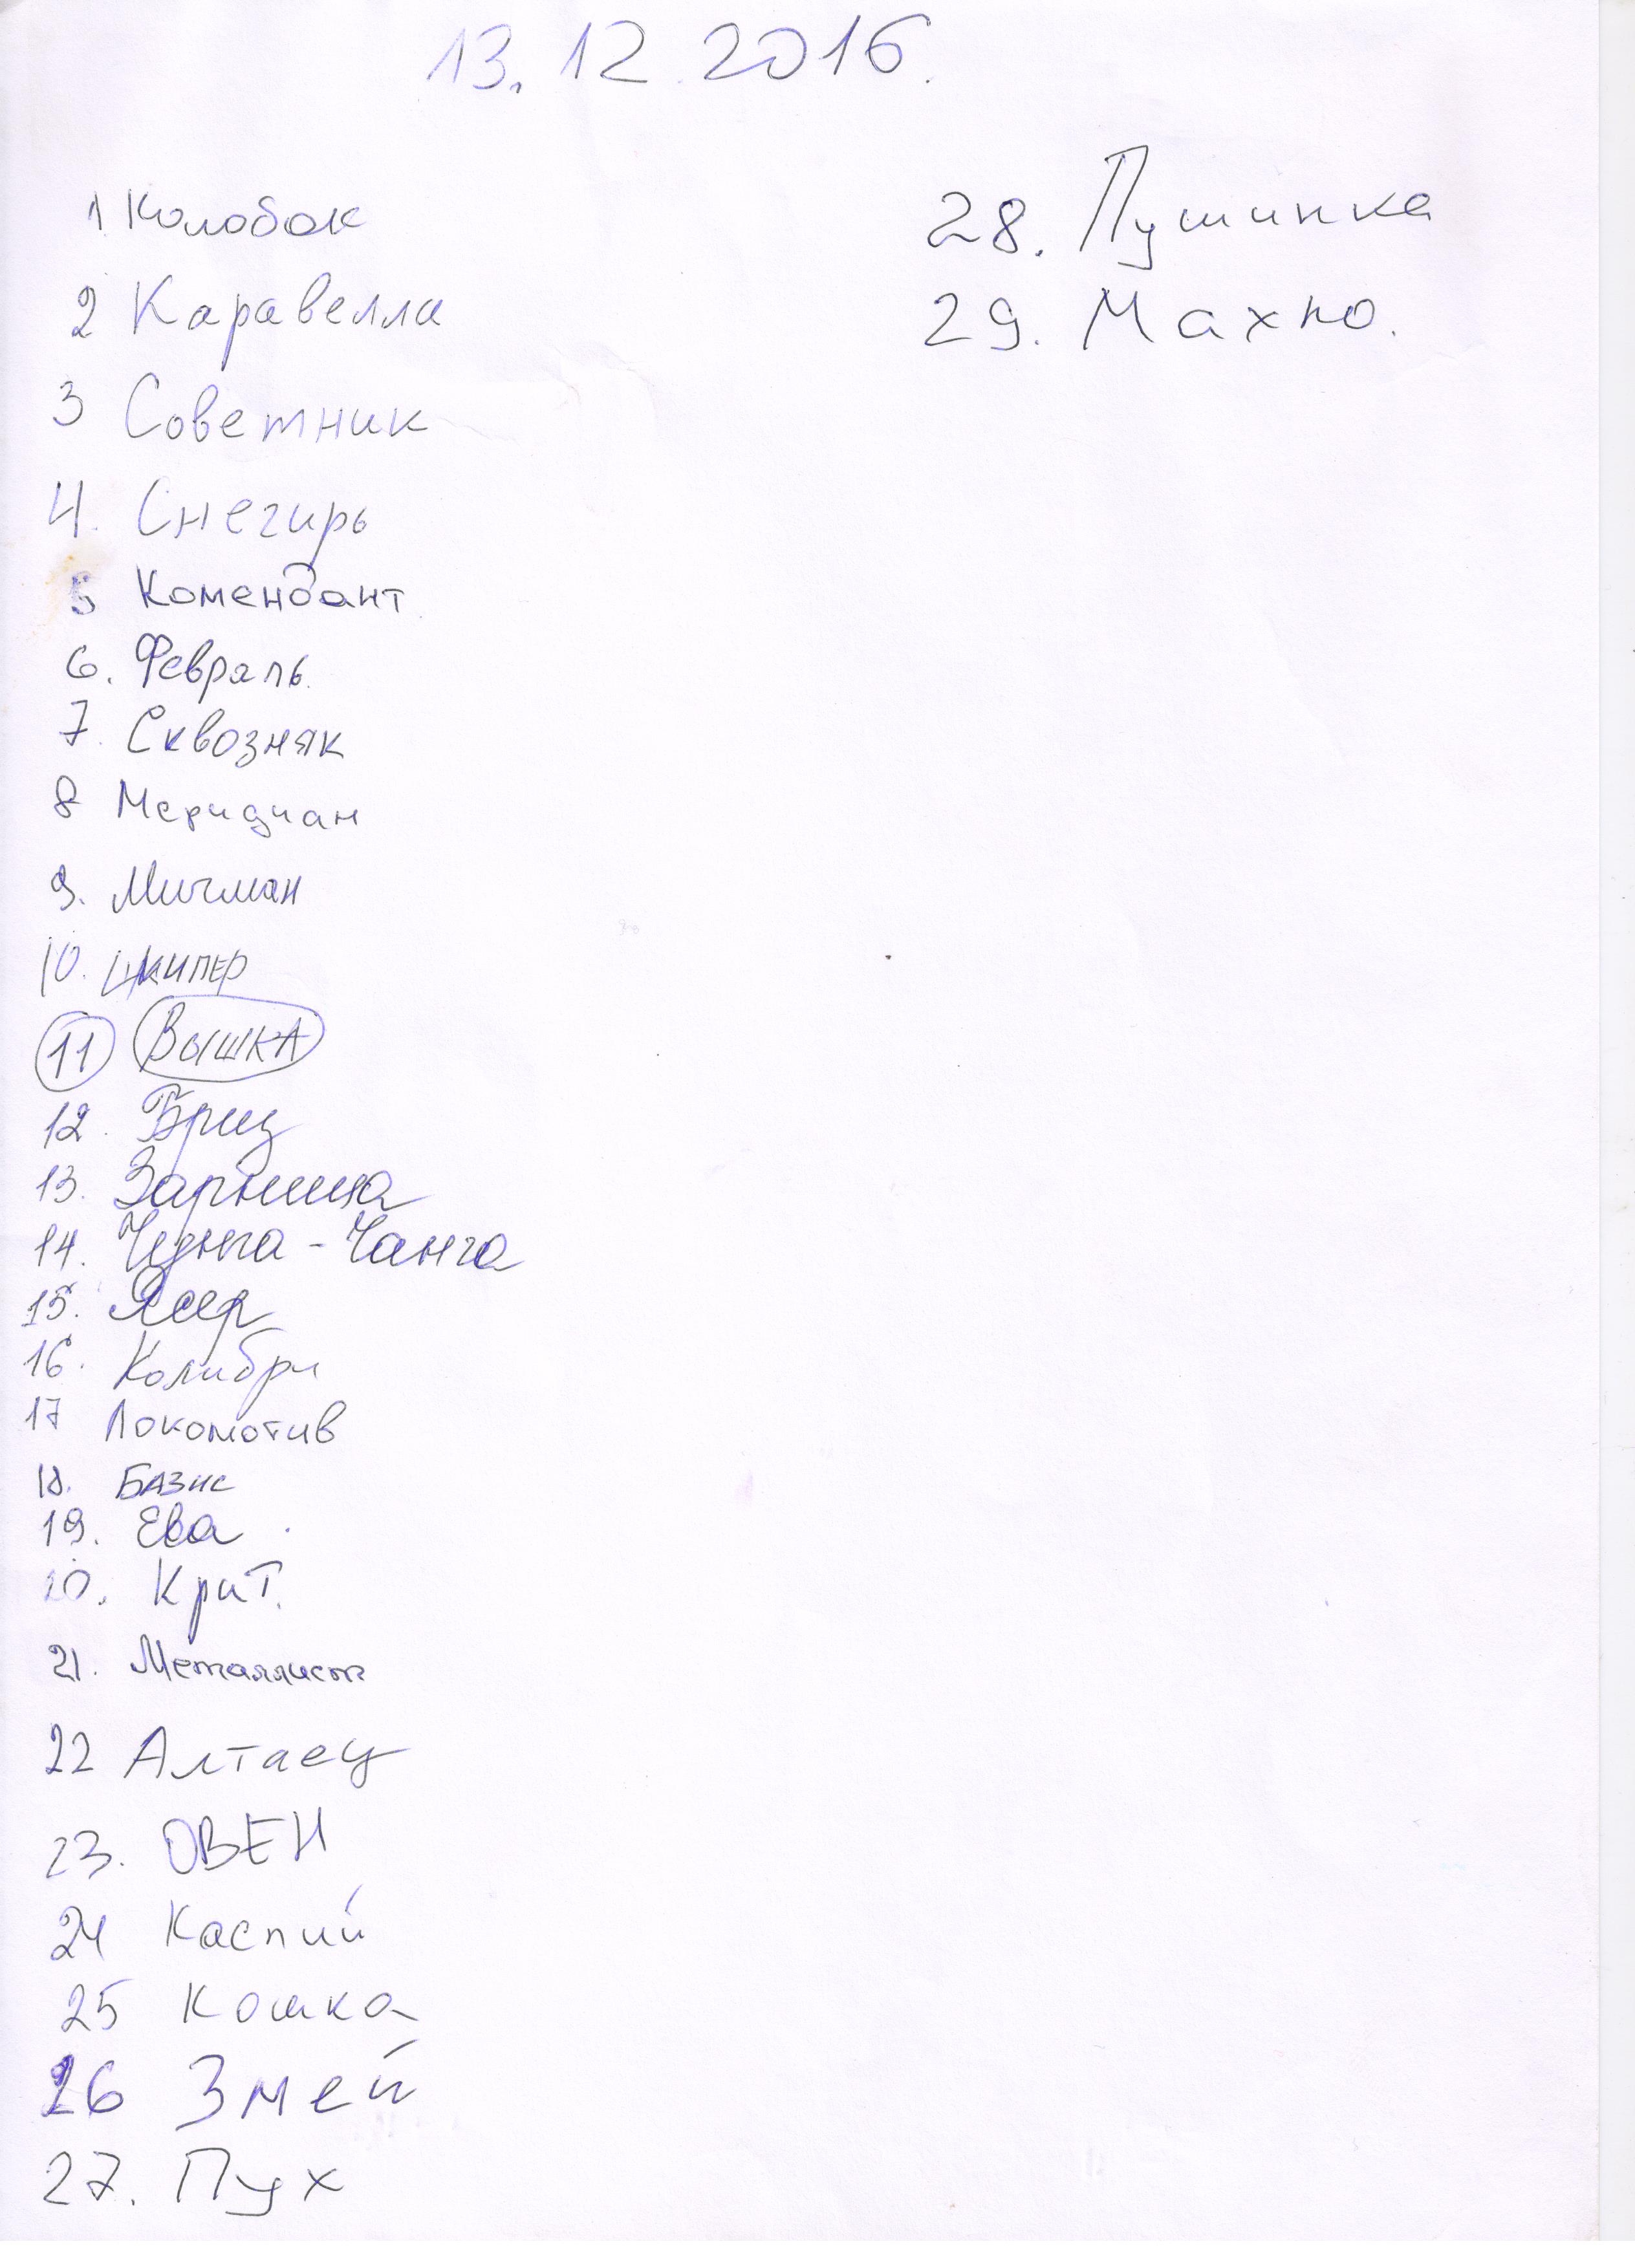 13.12.2016.
1 Колобок
2 Каравелла
3 Советник
4. Снегирь
5 Комендант
6. Февраль.
7. Сквозняк
8 Меридиан
9. Мичман
10. Шкипер
11 Вышка
12. Бриз
13. Зарница
14. Чунга-Чанга
15. Ясер
16. Колибри
17 Локомотив
18. Базис
19. Ева
20. Крит.
21. Металлист
22 Алтаец
23. ОВЕН
24 Каспий
25 Кошка
26 Змей
27. Пух
28. Пушинка
29. Махно.